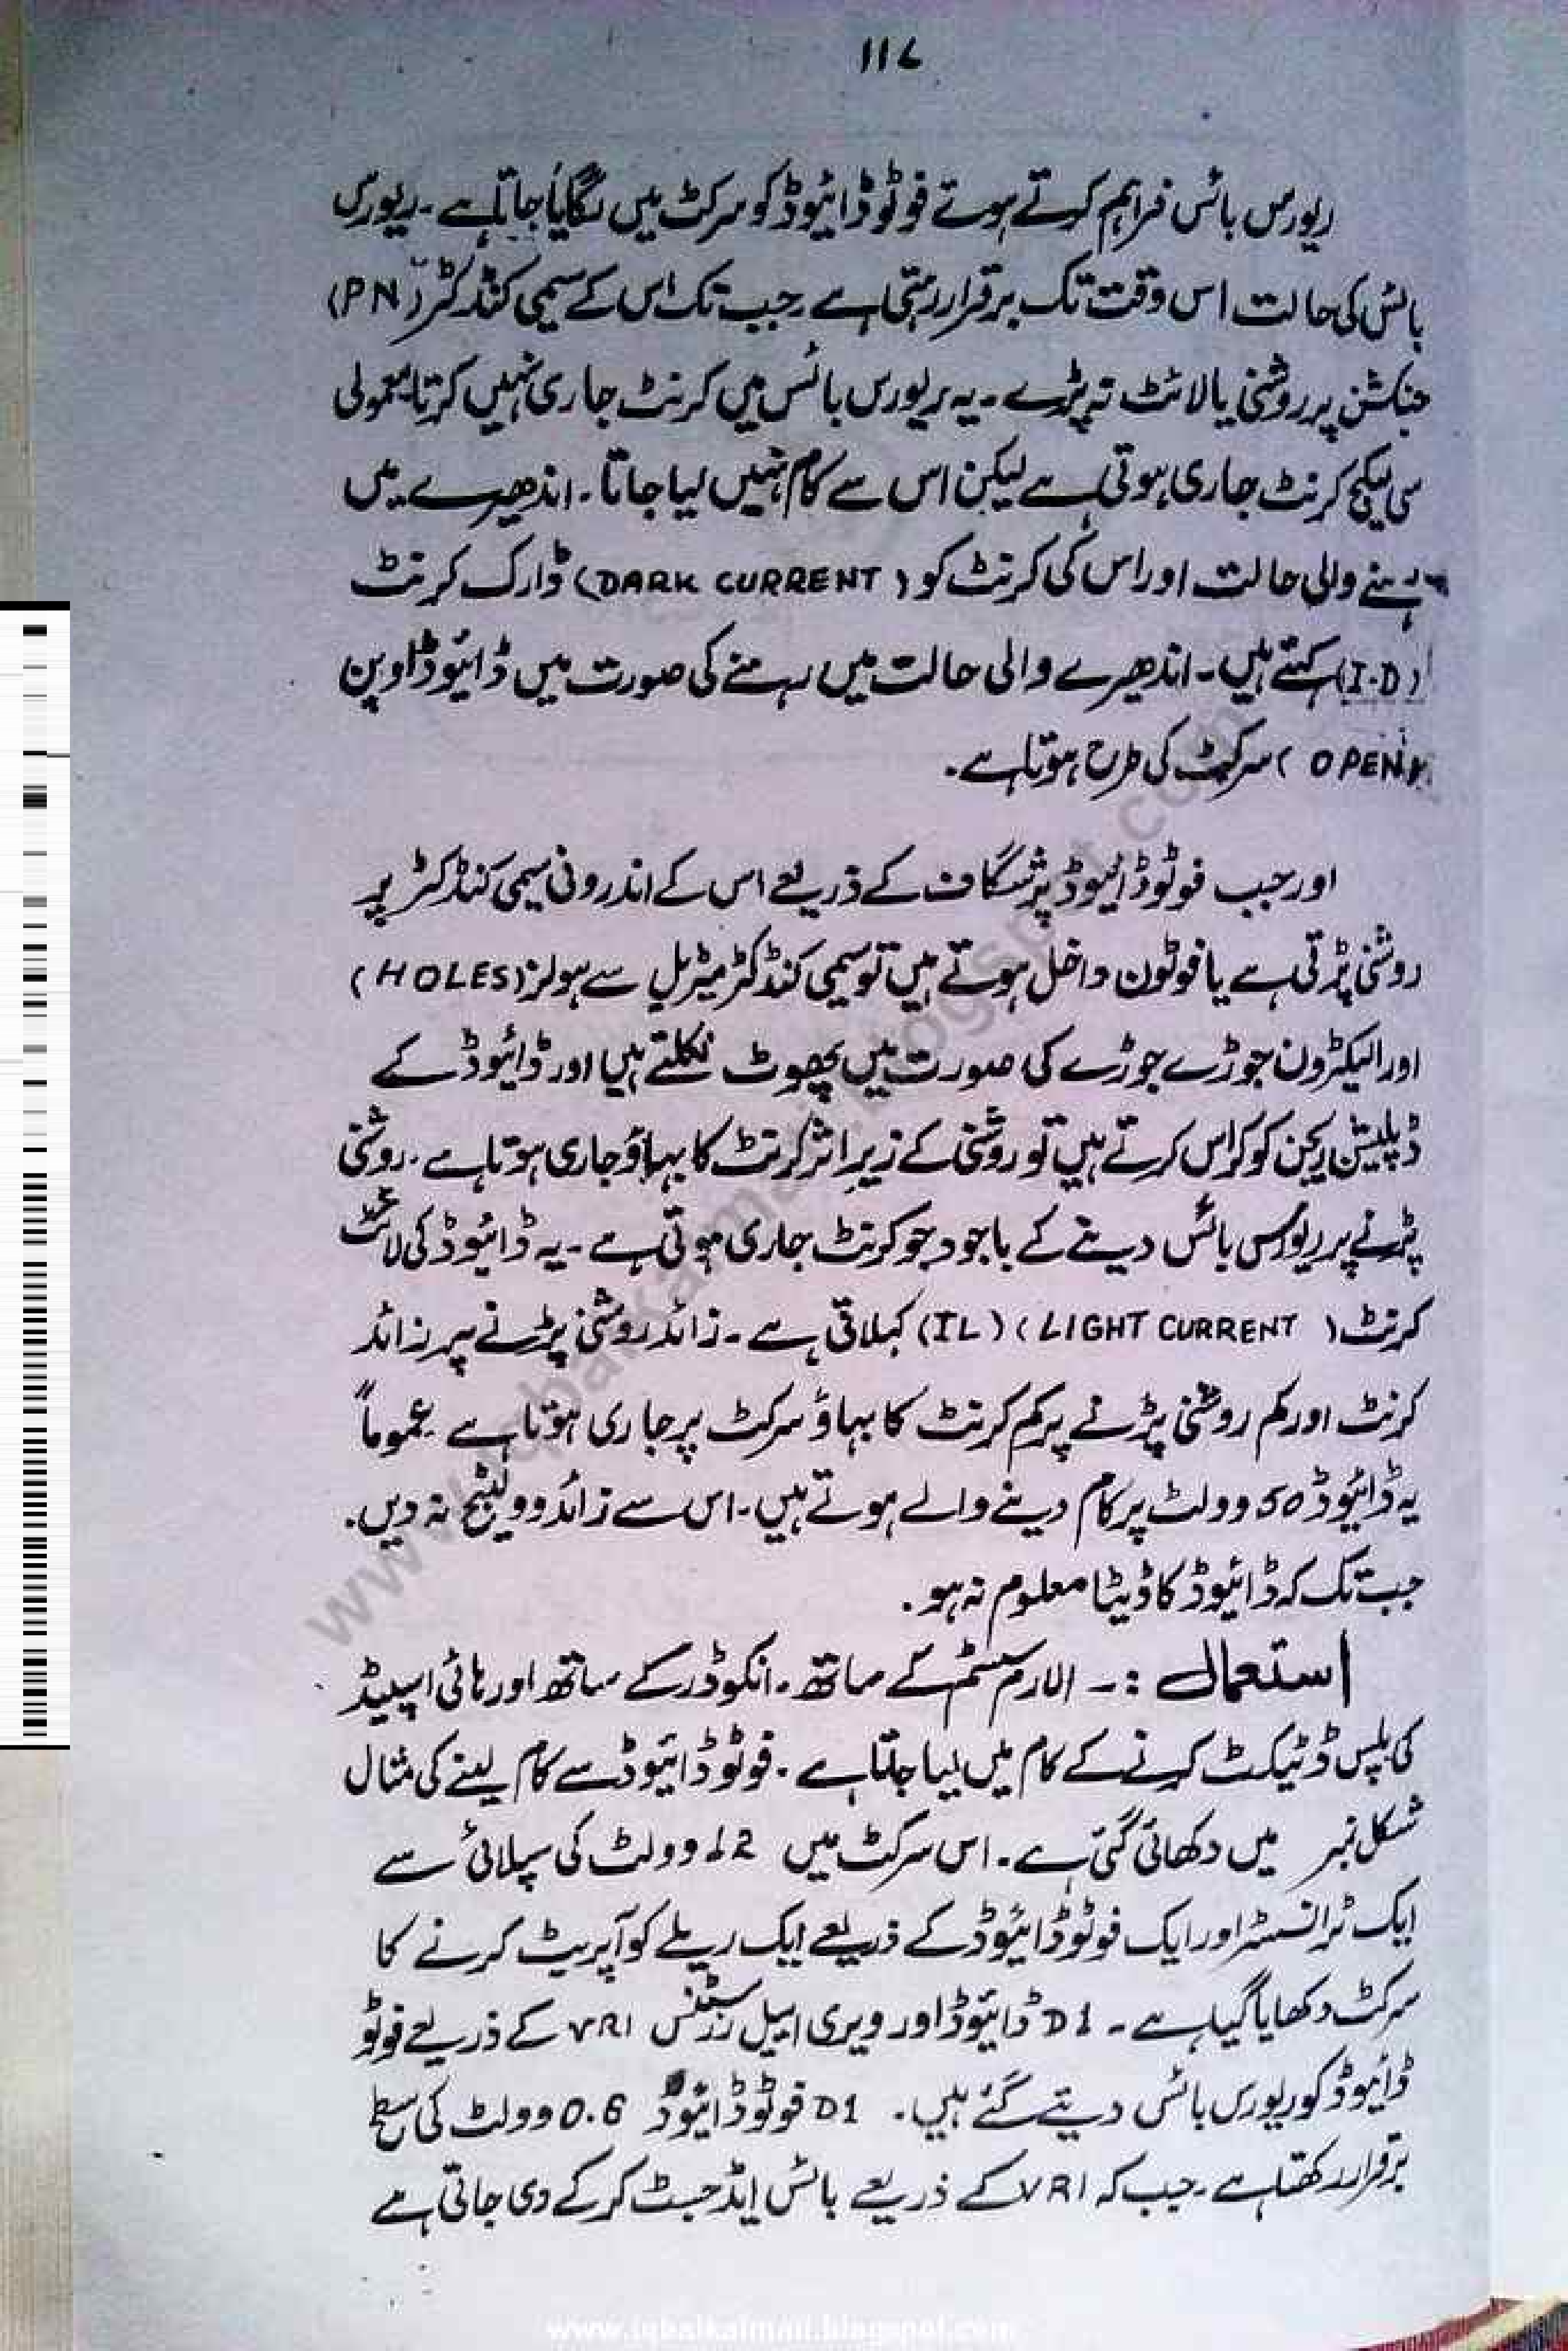 ۱۱۷
ریورس بائس فراہم کرتے ہوتے فوٹو ڈائیوڈ کو سرکٹ میں لگایا جاتا ہے ۔ ریورس
بائس کی حالت اس وقت تک برقرار رہتی ہے ۔ جب تک اس کے سیمی کنڈکٹر (PN)
جنکشن پر روشنی یا لائٹ نہ پڑے ۔ یہ ریورس بائس میں کرنٹ جاری نہیں کرتا معمولی
سی لیکیج کرنٹ جاری ہوتی ہے لیکن اس سے کام نہیں لیا جاتا ۔ اندھیرے میں
رہنے والی حالت اور اس کی کرنٹ کو (DARK CURRENT) ڈارک کرنٹ
(I.D) کہتے ہیں ۔ اندھیرے والی حالت میں رہنے کی صورت میں ڈائیوڈ اوپن
(OPEN) سرکٹ کی طرح ہوتا ہے ۔
اور جب فوٹو ڈائیوڈ پر شگاف کے ذریعے اس کے اندرونی سیمی کنڈکٹر پر
روشنی پڑتی ہے یا فوٹون داخل ہوتے ہیں تو سیمی کنڈکٹر میٹریل سے ہولز (HOLES)
اور الیکٹرون جوڑے جوڑے کی صورت میں پھوٹ نکلتے ہیں اور ڈائیوڈ کے
ڈپلیشن ریجن کو کراس کرتے ہیں تو روشنی کے زیر اثر کرنٹ کا بہاؤ جاری ہوتا ہے ۔ روشنی
پڑنے پر ریورس بائس دینے کے باجود جو کرنٹ جاری ہوتی ہے ۔ یہ ڈائیوڈ کی لائٹ
کرنٹ (LIGHT CURRENT) (IL) کہلاتی ہے ۔ زائد روشنی پڑنے پر زائد
کرنٹ اور کم روشنی پڑنے پر کم کرنٹ کا بہاؤ سرکٹ پر جاری ہوتا ہے عموماً
یہ ڈائیوڈ 50 وولٹ پر کام دینے والے ہوتے ہیں ۔ اس سے زائد وولٹیج نہ دیں ۔
جب تک کہ ڈائیوڈ کا ڈیٹا معلوم نہ ہو ۔
استعمال :۔ الارم سسٹم کے ساتھ ۔ انکوڈر کے ساتھ اور ہائی اسپیڈ
کی پلس ڈٹیکٹ کرنے کے کام میں لیا جاتا ہے ۔ فوٹو ڈائیوڈ سے کام لینے کی مثال
شکل نمبر میں دکھائی گئی ہے ۔ اس سرکٹ میں 12 وولٹ کی سپلائی سے
ایک ٹرانسسٹر اور ایک فوٹو ڈائیوڈ کے ذریعے ایک ریلے کو آپریٹ کرنے کا
سرکٹ دکھایا گیا ہے ۔ D1 ڈائیوڈ اور ویری ایبل رزسٹنس VR1 کے ذریعے فوٹو
ڈائیوڈ کو ریورس بائس دیتے گئے ہیں ۔ D1 فوٹو ڈائیوڈ 0.6 وولٹ کی سطح
برقرار رکھتا ہے ۔ جب کہ VR1 کے ذریعے بائس ایڈجسٹ کر کے دی جاتی ہے
www.iqbalkalmati.blogspot.com
www.iqbalkalmati.blogspot.com